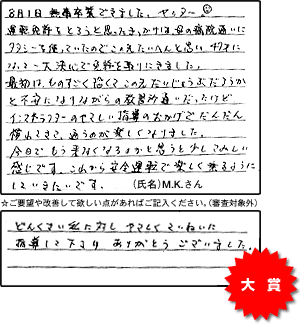 8月1日 無事卒業できました。ヤッター
運転免許をとろうと思ったきっかけは、母の病院通いに
タクシーを使っていたのでこのままじゃたいへんと思い
なって一大決心で免許を取りにきました。
最初は、ものすごく怖くてこのままだいじょうぶだろうか
と不安になりながらの教習所通いだったけど
インストラクターのやさしい指導のおかげでだんだん
慣れてきて、通うのが楽しくなりました。
今日でもう来なくなるのかと思うと少しさみしい
感じです。これから安全運転で楽しく乗るように
していきたいです。 (氏名)M.K.さん
☆ご要望や改善して欲しい点があればご記入ください。(審査対象外)
どんくさい私に対し やさしく ていねいに
指導して下さり ありがとう ございました。
大賞